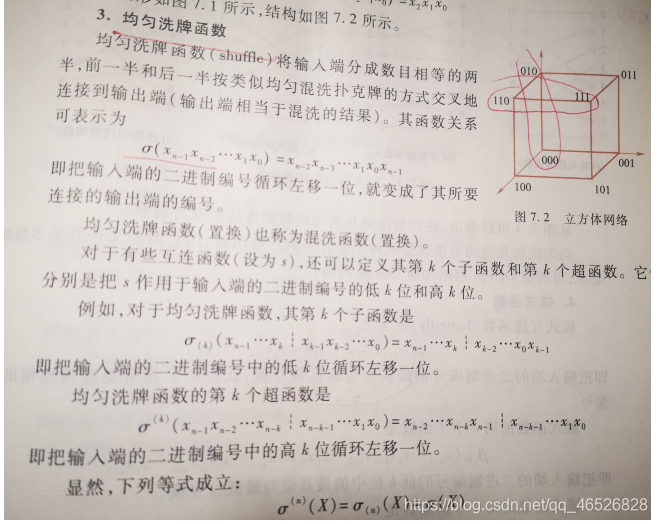 形如图 7.1 所示,结构如图 7.2 所示。
3. 均匀洗牌函数
均匀洗牌函数(shuffle)将输入端分成数目相等的两
半,前一半和后一半按类似均匀混洗扑克牌的方式交叉地
连接到输出端(输出端相当于混洗的结果)。其函数关系
可表示为
σ(xₙ₋₁xₙ₋₂⋯x₁x₀)=xₙ₋₂xₙ₋₃⋯x₁x₀xₙ₋₁
即把输入端的二进制编号循环左移一位,就变成了其所要
连接的输出端的编号。
010
011
110
111
000
001
100
101
图 7.2 立方体网络
均匀洗牌函数(置换)也称为混洗函数(置换)。
对于有些互连函数(设为 s),还可以定义其第 k 个子函数和第 k 个超函数。它
分别是把 s 作用于输入端的二进制编号的低 k 位和高 k 位。
例如,对于均匀洗牌函数,其第 k 个子函数是
σ₍ₖ₎(xₙ₋₁⋯xₖ ┆ xₖ₋₁xₖ₋₂⋯x₀)=xₙ₋₁⋯xₖ ┆ xₖ₋₂⋯x₀xₖ₋₁
即把输入端的二进制编号中的低 k 位循环左移一位。
均匀洗牌函数的第 k 个超函数是
σ⁽ᵏ⁾(xₙ₋₁xₙ₋₂⋯xₙ₋ₖ ┆ xₙ₋ₖ₋₁⋯x₁x₀)=xₙ₋₂⋯xₙ₋ₖxₙ₋₁ ┆ xₙ₋ₖ₋₁⋯x₁x₀
即把输入端的二进制编号中的高 k 位循环左移一位。
显然,下列等式成立:
σ⁽ⁿ⁾(X)=σ₍ₙ₎(X)=σ(X)
https://blog.csdn.net/qq_46526828